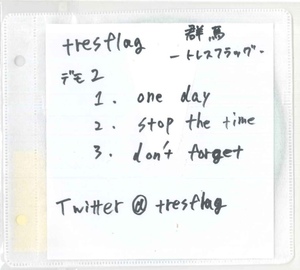 tresflag 群馬
-トレスフラッグ-
デモ2
1. one day
2. stop the time
3. don't forget
Twitter @ tresflag